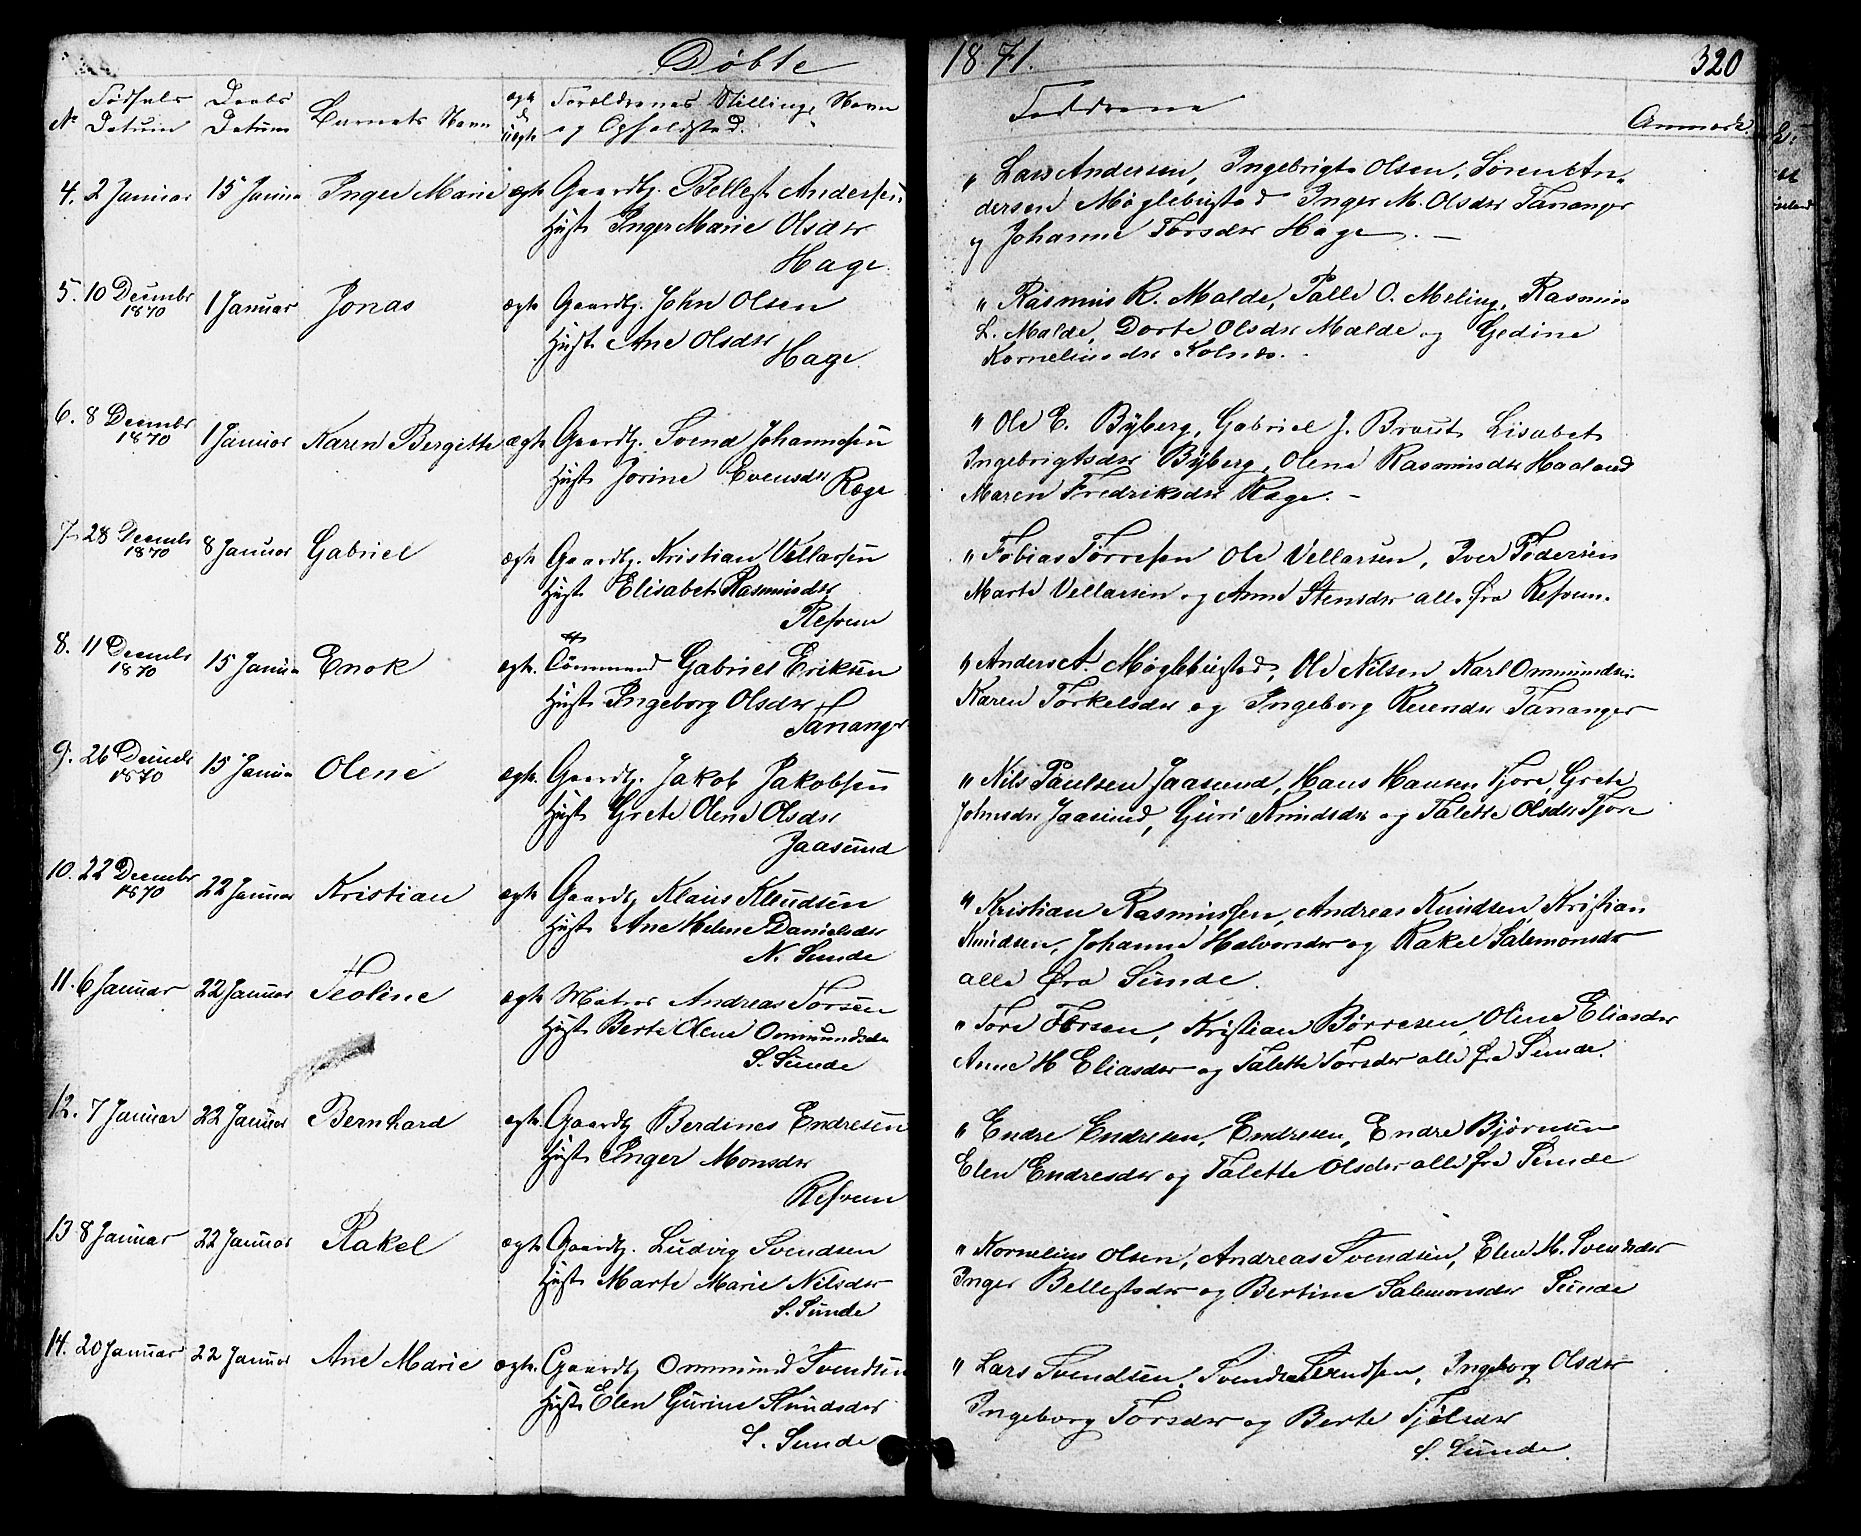 Døbte
No Fødsels Datum
Daabs Datum
Barnets Navn
ægte uægte
Forældrenes Stilling, Navn
og Opholdsted.
4. 2 Januar 15 Januar Inger Marie ægte Gaardbr. Bellest Andersen
Hust. Inger Marie Olsdr
Hage.
5. 10 Decembr 1870 1 Januar Jonas ægte Gaardbr. John Olsen
Hust. Ane Olsdr
Hage.
6. 8 Decembr 1870 1 Januar Karen Bergitte ægte Gaardbr. Svend Johannesen
Hust. Jorine Evensdr
Ræge
7. 28 Decembr 1870 8 Januar Gabriel ægte Gaardbr. Kristian Vellarsen
Hust Elisabet Rasmusdr
Refvem
8. 11 Decembr 1870 15 Januar Enok ægte. Gabriel Eriksen
Hust. Ingeborg Olsdr
Tananger
9. 26 Decembr 1870 15 Januar Olene ægte. Gaardbr. Jakob Jakobsen
Hust Grete Olene Olsdr
Jaasund
10. 22 Decembr 1870 22 Januar Kristian ægte Gaardbr Klaus Knudsen
Hust. Ane Helene Danielsdr
N. Sunde
11. 6 Januar 22 Januar Teoline ægte Matros Andreas Torsen
Hust Berte Olene Ommundsdr
S. Sunde
12. 7 Januar 22 Januar Bernhard ægte. Gaardbr Berdines Endresen
Hust. Inger Monsdr
Refvem
13 8 Januar 22 Januar Rakel ægte Gaardbr. Ludvig Svendsen
Hust. Marte Marie Nilsdr
S. Sunde
14. 20 Januar 22 Januar Ane Marie ægte. Gaardbr Ommund Svendsen
Hust. Elen Gurine Knudsdr
S. Sunde
1871. 320
Fadderne
Anmærk.
" Lars Andersen, Ingebrigt Olsen, Søren An-
dersen Møglebustad Inger M. Olsdr Tananger
og Johanne Torsdr Hage. —
" Rasmus R. Malde, Palle O. Meling, Rasmus
L. Malde, Dorte Olsdr Malde og Gedine
Korneliusdr Kolnes.
" Ole E. Byberg, Gabriel J. Braut Lisabet
Ingebrigtsdr Byberg, Olene Rasmusdr Haaland
Maren Fredriksdr Ræge. —
" Tobias Tørresen Ole Vellarsen, Iver Pedersen
Marte Vellarsen og Anne Stensdr alle fra Refvem.
" Anders A. Møglebustad, Ole Nilsen Karl Ommundsen
Karen Torkelsdr og Ingeborg Tananger
" Nils Paulsen Jaasund, Hans Hansen Tjore, Grete
Johnsdr Jaasund, Guri Knudsdr og Talette Olsdr Tjore
" Kristian Rasmussen, Andreas Knudsen Kristian
Knudsen, Johanne Halvorsdr og Rakel Salemonsdr
alle fra Sunde.
" Tore Torsen, Kristian Børresen, Oline Eliasdr
Anne H Eliasdr og Talette Torsdr alle fra Sunde.
" Endre Endresen, Endresen, Endre Bjørnsen
Elen Endresdr og Talette Olsdr alle fra Sunde
" Kornelius Olsen, Andreas Svendsen, Elen M. Svendsdr
Inger Bellestsdr og Bertine Salemonsdr Sunde
" Lars Svendsen, Svend Svendsen, Ingeborg Olsdr
Ingeborg Torsdr og Berte Tjølsdr
S. Sunde.